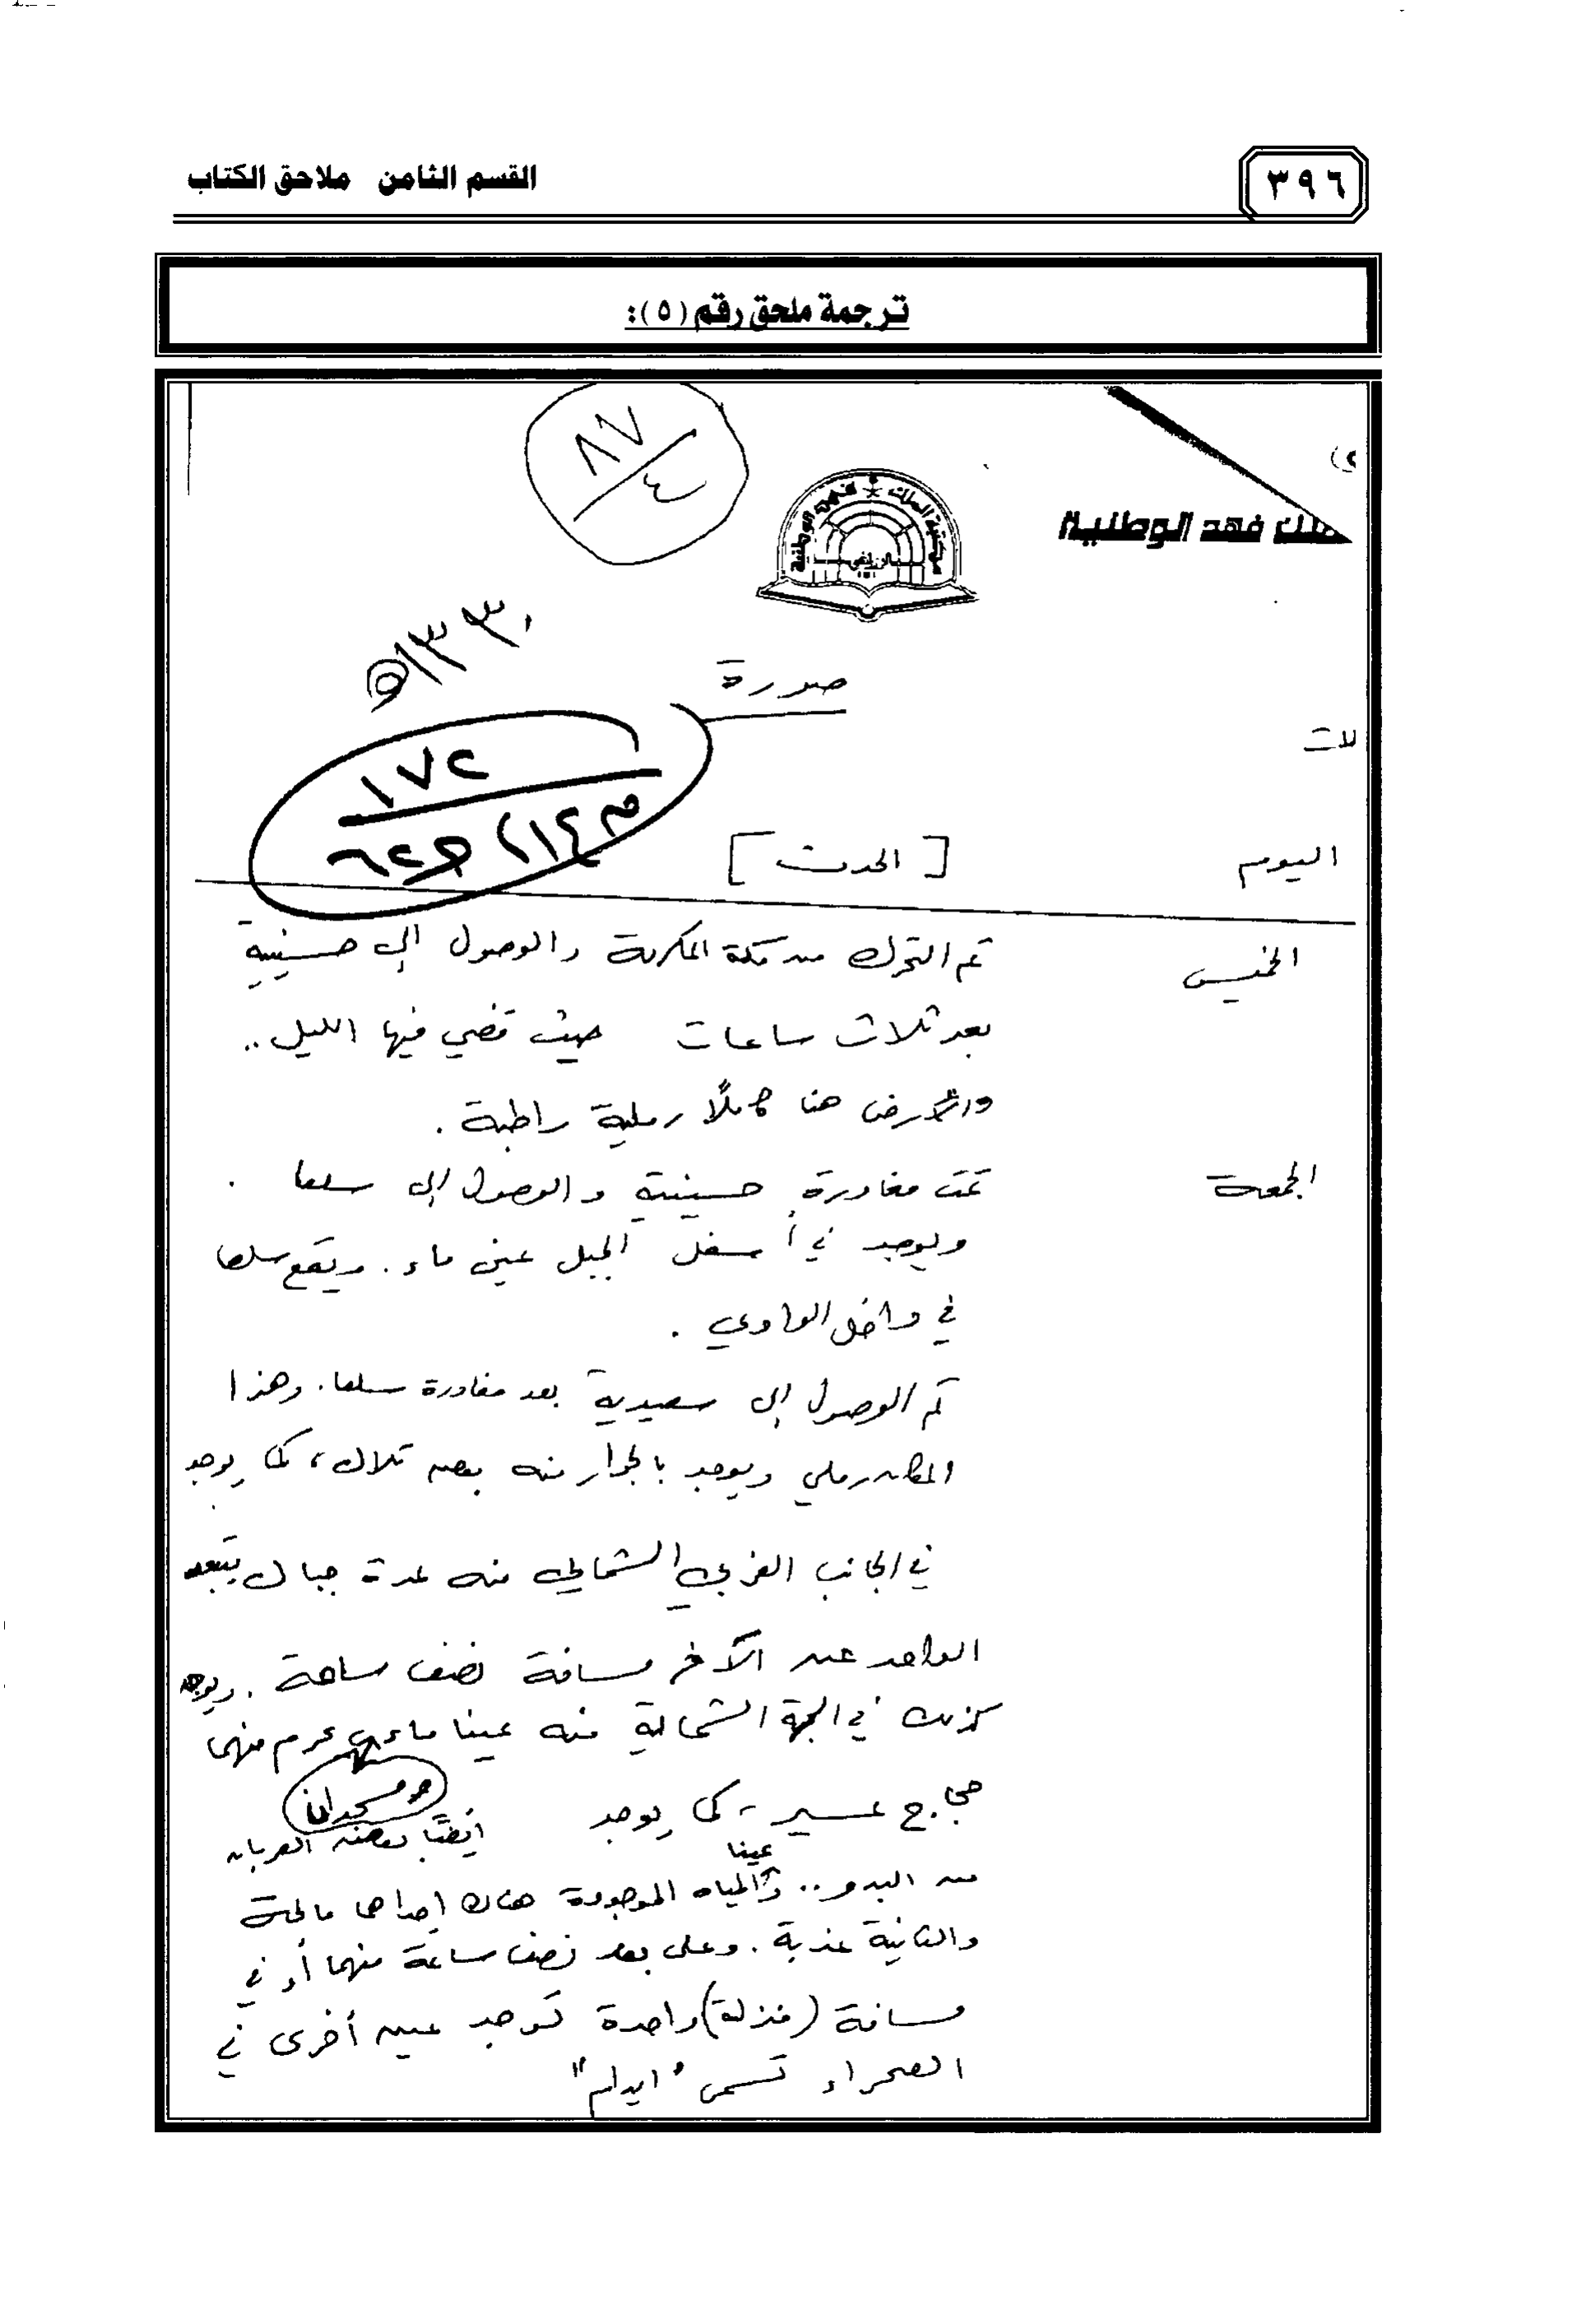 ٣٩٦
القسم الثامن ملاحق الكتاب
ترجمة ملحق رقم (٥):
٨٧
٤
لك فهد الوطنية
مكتبة الملك فهد الوطنية
١٣٣٠هـ
صورة
١٧٢
لات
اليوم [الحدث]
الخميس تم التحرك من مكة المكرمة والوصول إلى حسينية
بعد ثلاث ساعات حيث قضي فيها الليل ..
والأرض هنا كاملاً رملية راطبة .
الجمعة تمت مغادرة حسينية والوصول إلى سلعا .
ويوجد في أسفل الجبل عين ماء . ويقع سلعا
في داخل الوادي .
تم الوصول إلى سعيدية بعد مغادرة سلعا . وهذا
المكان رملي ويوجد بالجوار منه بعض تلال ، كما يوجد
في الجانب الغربي الشمالي منه عدة جبال يبتعد
الواحد عن الآخر مسافة نصف ساعة . ويوجد
كذلك في الجهة الشمالية منه عينا ماء يحرم منهما
حجاج عسير ، كما يوجد أيضًا بعض العربان
ومسجدان
من البدو .. وعينا المياه الموجودة هناك إحداها مالحة
والثانية عذبة . وعلى بعد نصف ساعة منهما أو في
مسافة (منزلة) واحدة توجد عين أخرى في
الصحراء تسمى "ايدام"